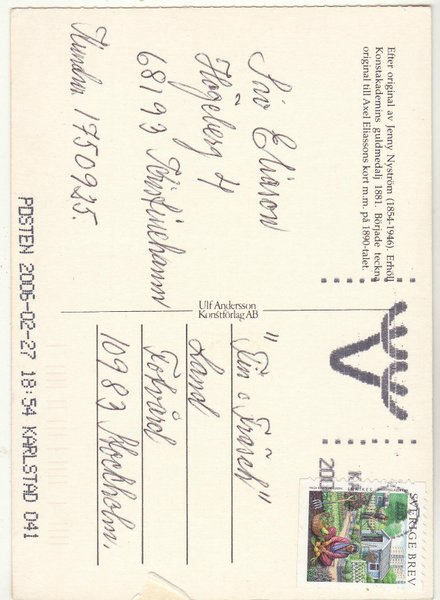 Efter original av Jenny Nyström (1854-1946). Erhöll
Konstakademins guldmedalj 1881. Började teckna
original till Axel Eliassons kort m.m. på 1890-talet.
Siv Eliason
Högeberg 4
68193 Kristinehamn
Kundnr 1750925.
Ulf Andersson
Konstförlag AB
"Fin o Fräsch"
Land
Fotvård
10983 Stockholm.
SVERIGE BREV
KA
200
POSTEN 2006-02-27 18:54 KARLSTAD 041